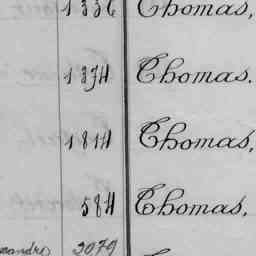 1336 Thomas,
1374 Thomas.
1814 Thomas,
584 Thomas,
3079